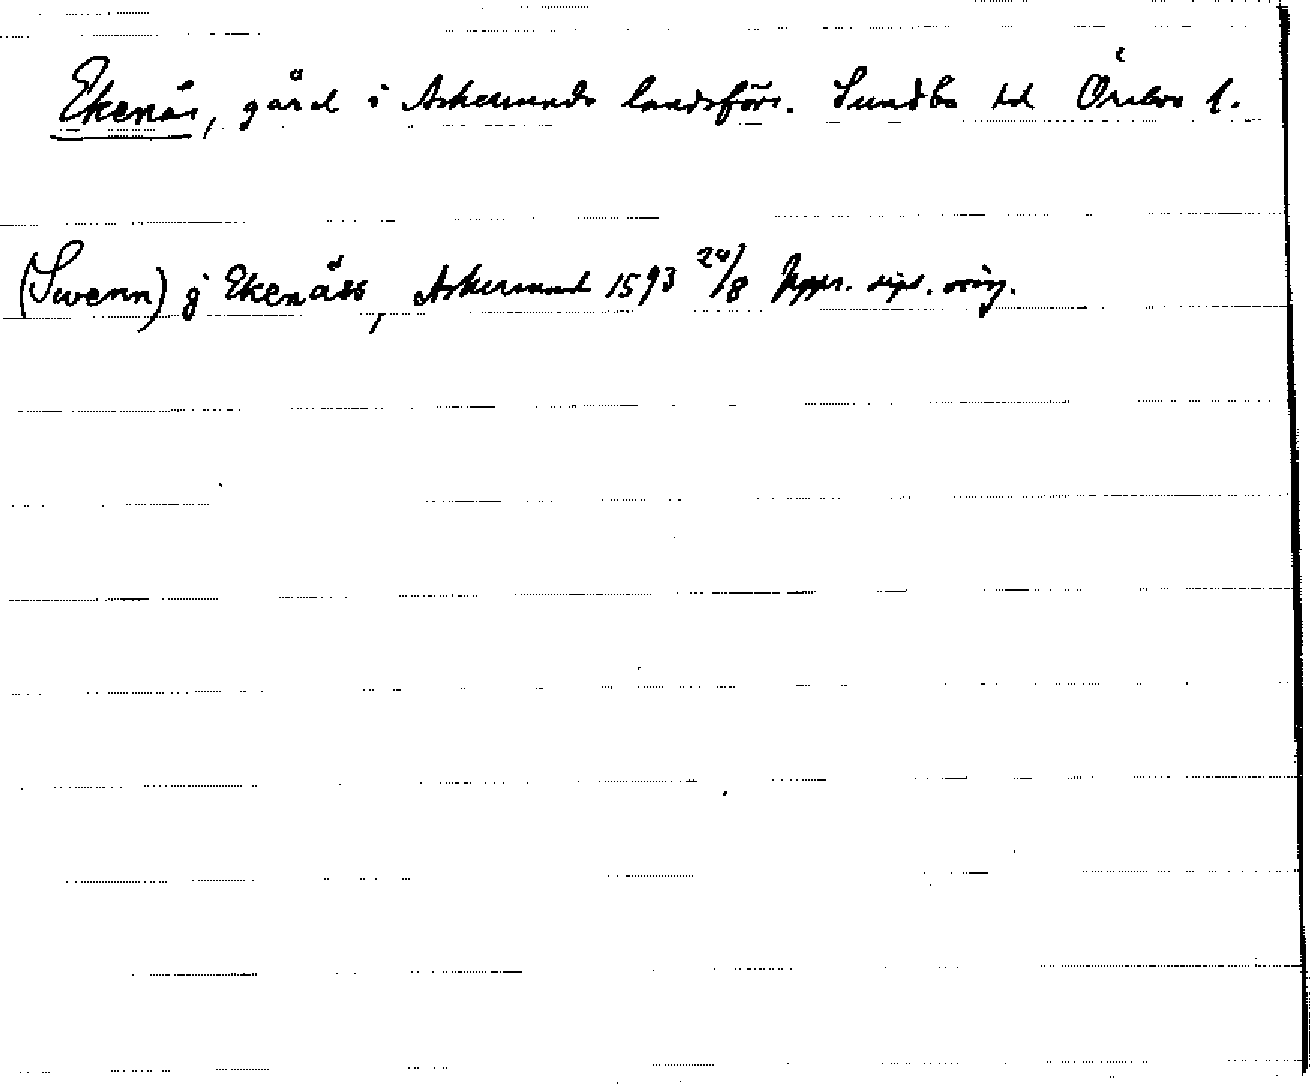 Ekenäs, gård i Askersunds landsförs. Sundbo hd Örebro l.
(Swenn) j Ekenäss, Askersund 1593 24/8 Upps. dipl. orig.